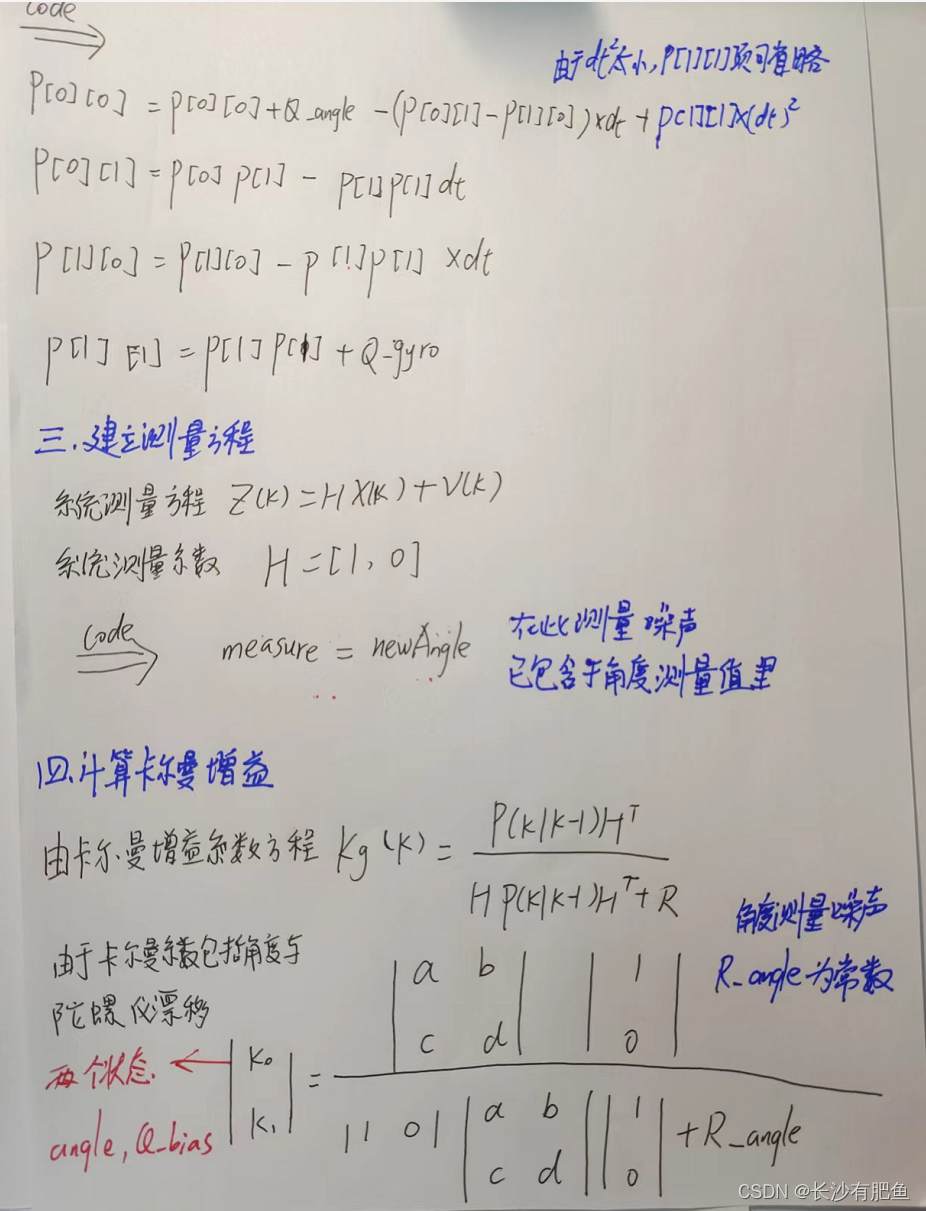 code
由于dt²太小,P[1][1]项可省略
P[0][0] = P[0][0]+Q_angle -(P[0][1]-P[1][0])×dt + P[1][1]×(dt)²
P[0][1] = P[0]P[1] - P[1]P[1]dt
P[1][0] = P[1][0] - P[1]P[1] ×dt
P[1][1] = P[1]P[1] + Q_gyro
三.建立测量方程
系统测量方程 Z(K) = H X(K) + V(K)
系统测量系数 H = [1, 0]
code measure = newAngle
在此测量噪声
已包含于角度测量值里
四.计算卡尔曼增益
由卡尔曼增益系数方程 Kg(K) = P(K|K-1)Hᵀ
H P(K|K-1)Hᵀ + R
角度测量噪声
R_angle为常数
由于卡尔曼系数包括角度与
陀螺仪漂移
两个状态.
angle, Q_bias
|K₀
K₁| =
|a b
c d| |1
0|
|1 0| |a b
c d| |1
0| + R_angle
CSDN @长沙有肥鱼